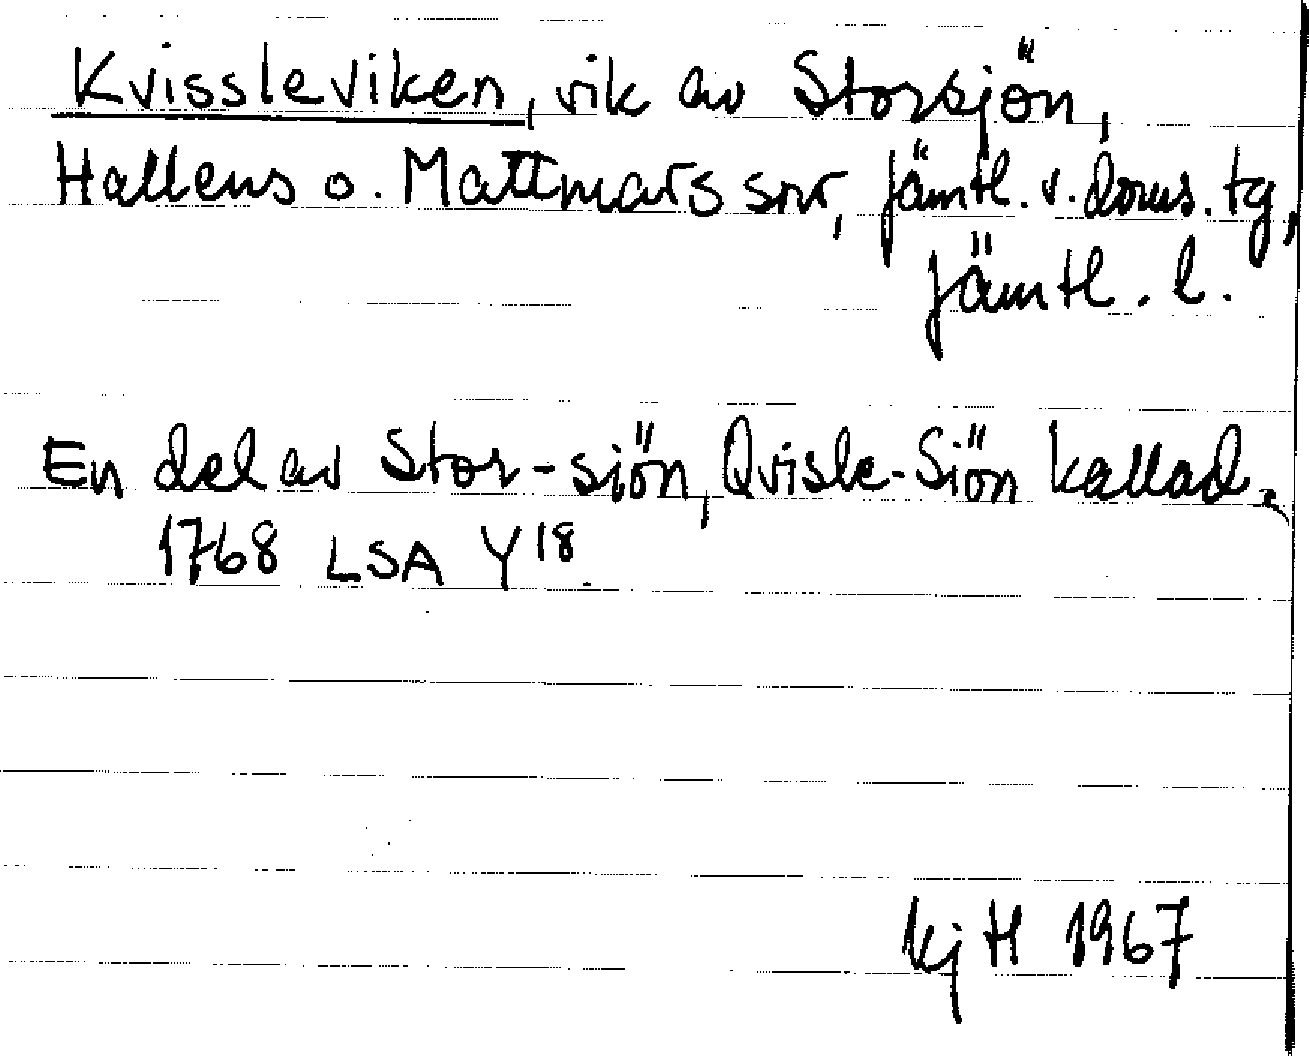 Kvissleviken, vik av Storsjön,
Hallens o. Mattmars snr, Jämtl. v. doms. tg,
Jämtl. l.
En del av Stor-siön, Qvisle-Siön kallad.
1768 LSA Y18
kj H 1967